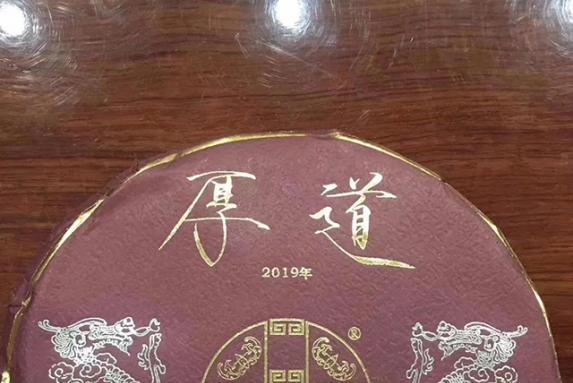 厚道
2019年
®